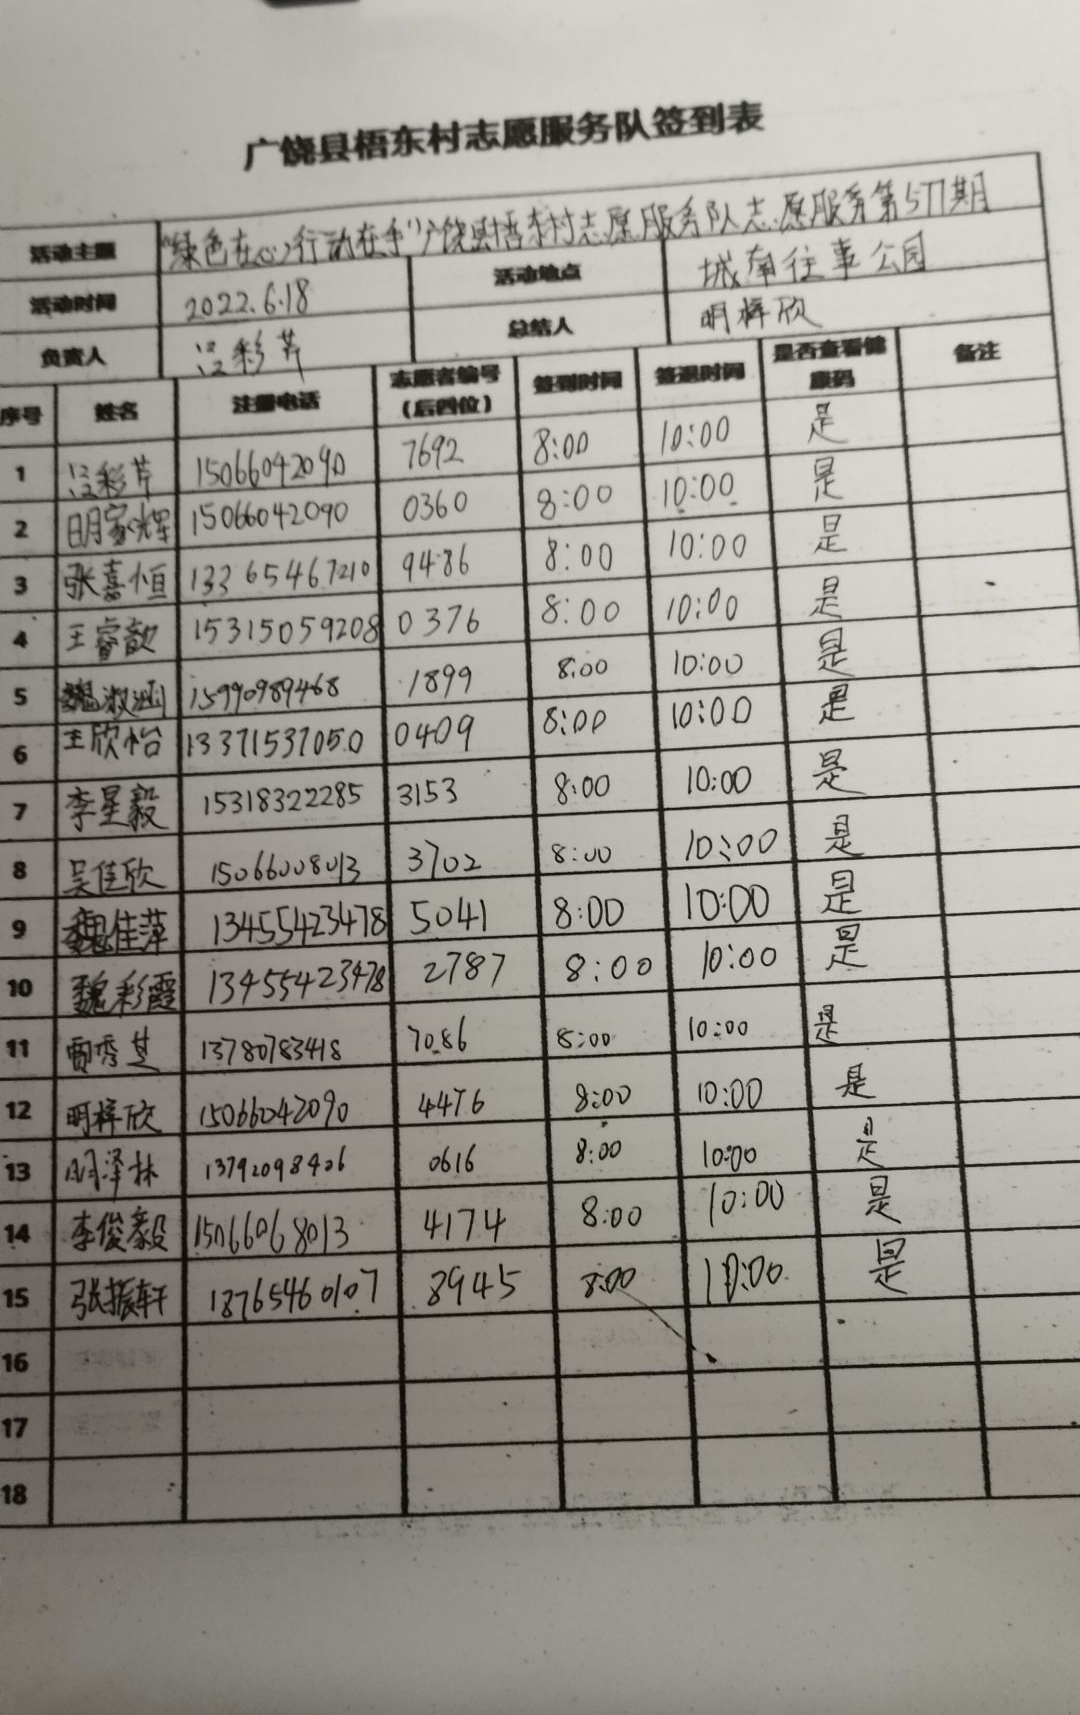 广饶县梧东村志愿服务队签到表
活动主题 "绿色在心行动在手"广饶县梧东村志愿服务队志愿服务第577期
活动时间 2022.6.18 活动地点 城南往事公园
负责人 彩芹 总结人 明梓欣
序号 姓名 注册电话 志愿者编号（后四位） 签到时间 签退时间 是否查看健康码 备注
1 彩芹 15066042090 7692 8:00 10:00 是
2 明家辉 15066042090 0360 8:00 10:00 是
3 张嘉恒 13365467210 9486 8:00 10:00 是
4 王睿歆 15315059208 0376 8:00 10:00 是
5 魏淑涵 15990989468 1899 8:00 10:00 是
6 王欣怡 13371537050 0409 8:00 10:00 是
7 李星毅 15318322285 3153 8:00 10:00 是
8 吴佳欣 15066008013 3702 8:00 10:00 是
9 魏佳萍 13455423478 5041 8:00 10:00 是
10 魏彩霞 13455423478 2787 8:00 10:00 是
11 秀芝 13780783418 7086 8:00 10:00 是
12 明梓欣 15066042090 4476 8:00 10:00 是
13 明泽林 13792098426 0616 8:00 10:00 是
14 李俊毅 15066068013 4174 8:00 10:00 是
15 张振轩 18765460107 8945 8:00 10:00 是
16
17
18